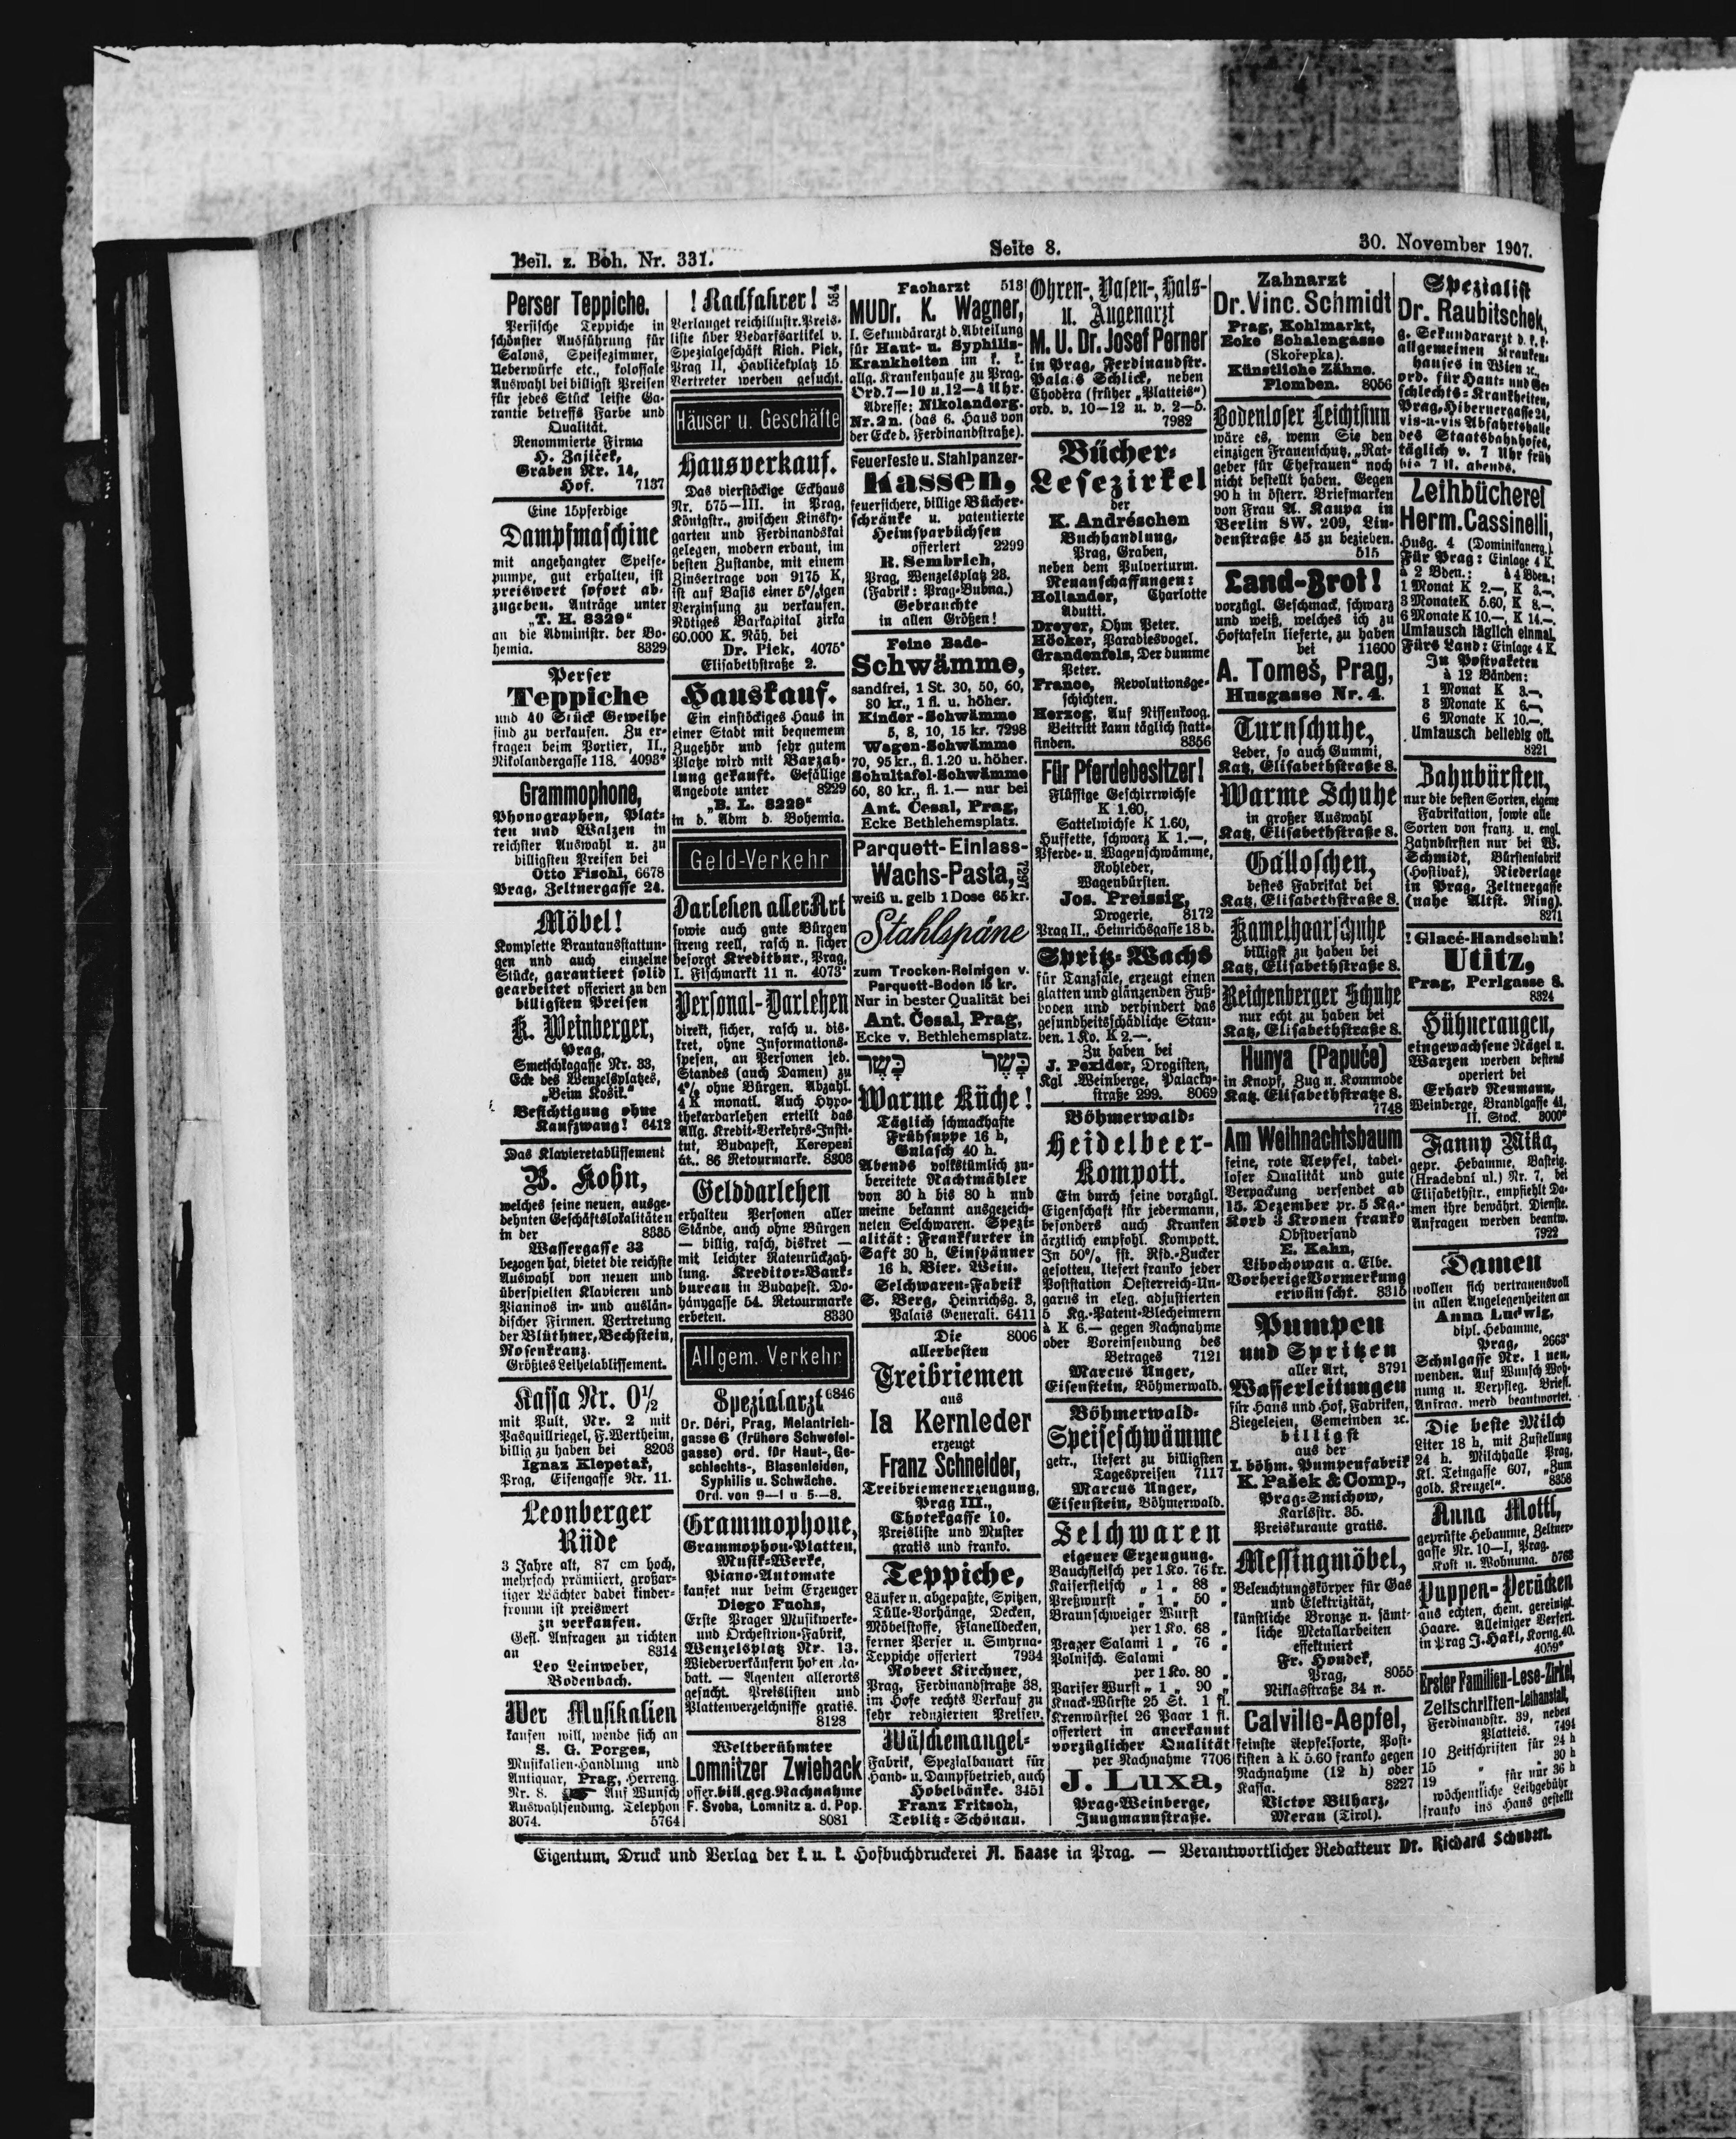 Beil. z. Boh. Nr. 331.
Seite 8.
30. November 1907.
Perser Teppiche.
Persische Teppiche in
schönster Ausführung für
Salons, Speisezimmer,
Ueberwürfe etc., kolossale
Auswahl bei billigst Preisen
für jedes Stück leiste Ga-
rantie betreffs Farbe und
Qualität.
Renommierte Firma
H. Zajiček,
Graben Nr. 14,
Hof. 7137
Eine 15pferdige
Dampfmaschine
mit angehangter Speise-
pumpe, gut erhalten, ist
preiswert sofort ab-
zugeben. Anträge unter
„T. H. 8329“
an die Administr. der Bo-
hemia. 8329
Perser
Teppiche
und 40 Stück Geweihe
sind zu verkaufen. Zu er-
fragen beim Portier, II.,
Nikolandergasse 118. 4093*
Grammophone,
Phonographen, Plat-
ten und Walzen in
reichster Auswahl u. zu
billigsten Preisen bei
Otto Fischl, 6678
Prag, Zeltnergasse 24.
Möbel!
Komplette Brautausstattun-
gen und auch einzelne
Stücke, garantiert solid
gearbeitet offeriert zu den
billigsten Preisen
K. Weinberger,
Prag,
Smetschkagasse Nr. 33,
Ecke des Wenzelsplatzes,
„Beim Kosik.“
Besichtigung ohne
Kaufzwang! 6412
Das Klavieretablissement
B. Kohn,
welches seine neuen, ausge-
dehnten Geschäftslokalitäten
in der 8335
Wassergasse 33
bezogen hat, bietet die reichste
Auswahl von neuen und
überspielten Klavieren und
Pianinos in- und auslän-
discher Firmen. Vertretung
der Blüthner, Bechstein,
Rosenkranz.
Größtes Leihetablissement.
Kassa Nr. 0½
mit Pult, Nr. 2 mit
Pasquillriegel, F. Wertheim,
billig zu haben bei 8203
Ignaz Klepetař,
Prag, Eisengasse Nr. 11.
Leonberger
Rüde
3 Jahre alt, 87 cm hoch,
mehrfach prämiiert, großar-
tiger Wächter dabei kinder-
fromm ist preiswert
zu verkaufen.
Gefl. Anfragen zu richten
an 8314
Leo Leinweber,
Bodenbach.
Wer Musikalien
kaufen will, wende sich an
S. G. Porges,
Musikalien-Handlung und
Antiquar, Prag, Herreng.
Nr. 8. Auf Wunsch
Auswahlsendung. Telephon
3074. 5764
! Radfahrer! 584
Verlanget reichillustr. Preis-
liste über Bedarfsartikel v.
Spezialgeschäft Rich. Pick,
Prag II, Havličekplatz 15.
Vertreter werden gesucht.
Häuser u. Geschäfte
Hausverkauf.
Das vierstöckige Eckhaus
Nr. 575—III. in Prag,
Königstr., zwischen Kinsky-
garten und Ferdinandskai
gelegen, modern erbaut, im
besten Zustande, mit einem
Zinsertrage von 9175 K,
ist auf Basis einer 5%igen
Verzinsung zu verkaufen.
Nötiges Barkapital zirka
60.000 K. Näh. bei
Dr. Pick, 4075*
Elisabethstraße 2.
Hauskauf.
Ein einstöckiges Haus in
einer Stadt mit bequemem
Zugehör und sehr gutem
Platze wird mit Barzah-
lung gekauft. Gefällige
Angebote unter 8229
„B. L. 8229“
in d. Adm d. Bohemia.
Geld-Verkehr
Darlehen aller Art
sowie auch gute Bürgen
streng reell, rasch u. sicher
besorgt Kreditbur., Prag,
I. Fischmarkt 11 n. 4073*
Personal-Darlehen
direkt, sicher, rasch u. dis-
kret, ohne Informations-
spesen, an Personen jeb.
Standes (auch Damen) zu
4% ohne Bürgen. Abzahl.
4 K monatl. Auch Hypo-
thekardarlehen erteilt das
Allg. Kredit-Verkehrs-Insti-
tut, Budapest, Kerepesi
út.. 86 Retourmarke. 8303
Gelddarlehen
erhalten Personen aller
Stände, auch ohne Bürgen
— billig, rasch, diskret —
mit leichter Ratenrückzah-
lung. Kreditor-Bank-
bureau in Budapest. Do-
hánygasse 54. Retourmarke
erbeten. 8330
Allgem. Verkehr
Spezialarzt 6846
Dr. Déri, Prag, Melantrich-
gasse 6 (frühere Schwefel-
gasse) ord. für Haut-, Ge-
schlechts-, Blasenleiden,
Syphilis u. Schwäche.
Ord. von 9—1 u 5—8.
Grammophone,
Grammophon-Platten,
Musik-Werke,
Piano-Automate
kaufet nur beim Erzeuger
Diego Fuchs,
Erste Prager Musikwerke-
und Orchestrion-Fabrik,
Wenzelsplatz Nr. 13.
Wiederverkäufern hohen Ra-
batt. — Agenten allerorts
gesucht. Preislisten und
Plattenverzeichnisse gratis.
8128
Weltberühmter
Lomnitzer Zwieback
offer. bill. geg. Nachnahme
F. Svoba, Lomnitz a. d. Pop.
8081
Facharzt 513
MUDr. K. Wagner,
I. Sekundärarzt d. Abteilung
für Haut- u. Syphilis-
Krankheiten im k. k.
allg. Krankenhause zu Prag.
Ord. 7—10 u. 12—4 Uhr.
Adresse: Nikolanderg.
Nr. 2 n. (das 6. Haus von
der Ecke d. Ferdinandstraße).
Feuerfeste u. Stahlpanzer-
Kassen,
feuersichere, billige Bücher-
schränke u. patentierte
Heimsparbüchsen
offeriert 2299
R. Sembrich,
Prag, Wenzelsplatz 28.
(Fabrik: Prag-Bubna.)
Gebrauchte
in allen Größen!
Feine Bade-
Schwämme,
sandfrei, 1 St. 30, 50, 60,
80 kr., 1 fl. u. höher.
Kinder-Schwämme
5, 8, 10, 15 kr. 7298
Wagen-Schwämme
70, 95 kr., fl. 1.20 u. höher.
Schultafel-Schwämme
60, 80 kr., fl. 1.— nur bei
Ant. Česal, Prag,
Ecke Bethlehemsplatz.
Parquett-Einlass-
Wachs-Pasta, 7297
weiß u. gelb 1 Dose 65 kr.
Stahlspäne
zum Trocken-Reinigen v.
Parquett-Boden 15 kr.
Nur in bester Qualität bei
Ant. Česal, Prag,
Ecke v. Bethlehemsplatz.
כָּשֵׁר כָּשֵׁר
Warme Küche!
Täglich schmackhafte
Frühsuppe 16 h,
Gulasch 40 h.
Abends volkstümlich zu-
bereitete Nachtmähler
von 30 h bis 80 h und
meine bekannt ausgezeich-
neten Selchwaren. Spezi-
alität: Frankfurter in
Saft 30 h, Einspänner
16 h. Bier. Wein.
Selchwaren-Fabrik
S. Berg, Heinrichsg. 3,
Palais Generali. 6411
Die 8006
allerbesten
Treibriemen
aus
Ia Kernleder
erzeugt
Franz Schneider,
Treibriemenerzeugung,
Prag III.,
Chotekgasse 10.
Preisliste und Muster
gratis und franko.
Teppiche,
Läufer u. abgepaßte, Spitzen,
Tülle-Vorhänge, Decken,
Möbelstoffe, Flanelldecken,
ferner Perser u. Smyrna-
Teppiche offeriert 7934
Robert Kirchner,
Prag, Ferdinandstraße 38,
im Hofe rechts Verkauf zu
sehr reduzierten Preisen.
Wäschemangel-
Fabrik, Spezialbauart für
Hand- u. Dampfbetrieb, auch
Hobelbänke. 3451
Franz Fritsch,
Teplitz-Schönau.
Ohren-, Nasen-, Hals-
u. Augenarzt
M. U. Dr. Josef Perner
in Prag, Ferdinandstr.
Palais Schlick, neben
Chodera (früher „Platteis“)
ord. v. 10—12 u. v. 2—5.
7982
Bücher-
Lesezirkel
der
K. Andréschen
Buchhandlung,
Prag, Graben,
neben dem Pulverturm.
Neuanschaffungen:
Hollander, Charlotte
Adutti.
Dreyer, Ohm Peter.
Höcker, Paradiesvogel.
Grandenfels, Der dumme
Peter.
France, Revolutionsge-
schichten.
Herzog, Auf Nissenkoog.
Beitritt kann täglich statt-
finden. 8356
Für Pferdebesitzer!
Flüssige Geschirrwichse
K 1.60,
Sattelwichse K 1.60,
Huffette, schwarz K 1.—,
Pferde- u. Wagenschwämme,
Rohleder,
Wagenbürsten.
Jos. Preissig,
Drogerie, 8172
Prag II., Heinrichsgasse 18 b.
Spritz-Wachs
für Tanzsäle, erzeugt einen
glatten und glänzenden Fuß-
boden und verhindert das
gesundheitsschädliche Stau-
ben. 1 Ko. K 2.—.
Zu haben bei
J. Pexider, Drogisten,
Kgl. Weinberge, Palacky-
straße 299. 8069
Böhmerwald-
Heidelbeer-
Kompott.
Ein durch seine vorzügl.
Eigenschaft für jedermann,
besonders auch Kranken
ärztlich empfohl. Kompott.
In 50% fst. Rfd.-Zucker
gesotten, liefert franko jeder
Poststation Oesterreich-Un-
garns in eleg. adjustierten
5 Kg.-Patent-Blecheimern
à K 6.— gegen Nachnahme
oder Voreinsendung des
Betrages 7121
Marcus Unger,
Eisenstein, Böhmerwald.
Böhmerwald-
Speiseschwämme
getr., liefert zu billigsten
Tagespreisen 7117
Marcus Unger,
Eisenstein, Böhmerwald.
Selchwaren
eigener Erzeugung.
Bauchfleisch per 1 Ko. 76 kr.
Kaiserfleisch „ 1 „ 88 „
Preßwurst „ 1 „ 50 „
Braunschweiger Wurst
per 1 Ko. 68 „
Prager Salami 1 „ 76 „
Polnisch. Salami
per 1 Ko. 80 „
Pariser Wurst „ 1 „ 90 „
Knack-Würste 25 St. 1 fl.
Krenwürstel 26 Paar 1 fl.
offeriert in anerkannt
vorzüglicher Qualität
per Nachnahme 7706
J. Luxa,
Prag-Weinberge,
Jungmannstraße.
Zahnarzt
Dr. Vinc. Schmidt
Prag, Kohlmarkt,
Ecke Schalengasse
(Skořepka).
Künstliche Zähne.
Plomben. 8056
Bodenloser Leichtsinn
wäre es, wenn Sie den
einzigen Frauenschutz, „Rat-
geber für Ehefrauen“ noch
nicht bestellt haben. Gegen
90 h in österr. Briefmarken
von Frau A. Kaupa in
Berlin SW. 209, Lin-
denstraße 45 zu beziehen.
515
Land-Brot!
vorzügl. Geschmack, schwarz
und weiß, welches ich zu
Hoftafeln lieferte, zu haben
bei 11600
A. Tomeš, Prag,
Husgasse Nr. 4.
Turnschuhe,
Leder, so auch Gummi,
Katz, Elisabethstraße 8.
Warme Schuhe
in großer Auswahl
Katz, Elisabethstraße 8.
Galloschen,
bestes Fabrikat bei
Katz, Elisabethstraße 8.
Kamelhaarschuhe
billigst zu haben bei
Katz, Elisabethstraße 8.
Reichenberger Schuhe
nur echt zu haben bei
Katz, Elisabethstraße 8.
Hunya (Papuče)
in Knopf, Zug u. Kommode
Katz, Elisabethstraße 8.
7748
Am Weihnachtsbaum
feine, rote Aepfel, tadel-
loser Qualität und gute
Verpackung versendet ab
15. Dezember pr. 5 Kg.-
Korb 3 Kronen franko
Obstversand
E. Kahn,
Libochowan a. Elbe.
Vorherige Vormerkung
erwünscht. 8315
Pumpen
und Spritzen
aller Art, 3791
Wasserleitungen
für Haus und Hof, Fabriken,
Ziegeleien, Gemeinden ꝛc.
billigst
aus der
I. böhm. Pumpenfabrik
K. Pašek & Comp.,
Prag-Smichow,
Karlsstr. 35.
Preiskurante gratis.
Messingmöbel,
Beleuchtungskörper für Gas
und Elektrizität,
künstliche Bronze u. sämt-
liche Metallarbeiten
effektuiert
Fr. Houdek,
Prag, 8055
Niklasstraße 34 n.
Calville-Aepfel,
feinste Aepfelsorte, Post-
kisten à K 5.60 franko gegen
Nachnahme (12 h) oder
Kassa. 8227
Victor Bilharz,
Meran (Tirol).
Spezialist
Dr. Raubitschek,
g. Sekundararzt d. k. k.
allgemeinen Kranken-
hauses in Wien ꝛc.,
ord. für Haut- und Ge-
schlechts-Krankheiten,
Prag, Hibernergasse 24,
vis-a-vis Abfahrtshalle
des Staatsbahnhofes,
täglich v. 7 Uhr früh
bis 7 U. abends.
Leihbücherei
Herm. Cassinelli,
Husg. 4 (Dominikanerg.).
Für Prag: Einlage 4 K.
à 2 Bden.: à 4 Bden.:
1 Monat K 2.—, K 3.—,
3 Monate K 5.60, K 8.—,
6 Monate K 10.—, K 14.—.
Umtausch täglich einmal.
Fürs Land: Einlage 4 K.
In Postpaketen
à 12 Bänden:
1 Monat K 3.—,
3 Monate K 6.—,
6 Monate K 10.—.
Umtausch beliebig oft.
8221
Zahnbürsten,
nur die besten Sorten, eigene
Fabrikation, sowie alle
Sorten von franz. u. engl.
Zahnbürsten nur bei W.
Schmidt, Bürstenfabrik
(Hostivař), Niederlage
in Prag, Zeltnergasse
(nahe Altst. Ring).
8271
! Glacé-Handschuh!
Utitz,
Prag, Perlgasse 8.
8324
Hühneraugen,
eingewachsene Nägel u.
Warzen werden bestens
operiert bei
Erhard Neumann,
Weinberge, Brandlgasse 41,
II. Stock. 3000*
Fanny Mika,
gepr. Hebamme, Basteig.
(Hradební ul.) Nr. 7, bei
Elisabethstr., empfiehlt Da-
men ihre bewährt. Dienste.
Anfragen werden beantw.
7922
Damen
wollen sich vertrauensvoll
in allen Angelegenheiten an
Anna Ludwig,
dipl. Hebamme,
Prag, 2663*
Schulgasse Nr. 1 neu,
wenden. Auf Wunsch Woh-
nung u. Verpfleg. Briefl.
Anfrag. werd beantwortet.
Die beste Milch
Liter 18 h, mit Zustellung
24 h. Milchhalle Prag,
Kl. Teingasse 607, „Zum
gold. Kreuzel“. 8358
Anna Mottl,
geprüfte Hebamme, Zeltner-
gasse Nr. 10—I, Prag.
Kost u. Wohnung. 5763
Puppen-Perücken
aus echten, chem. gereinigt.
Haare. Alleiniger Verfert.
in Prag J. Hakl, Korng. 40.
4059*
Erster Familien-Lese-Zirkel,
Zeitschriften-Leihanstalt,
Ferdinandstr. 39, neben
Platteis. 7494
10 Zeitschriften für 24 h
15 „ „ 30 h
19 „ für nur 36 h
wöchentliche Leihgebühr
franko ins Haus gestellt
Eigentum, Druck und Verlag der k. u. k. Hofbuchdruckerei A. Haase in Prag. — Verantwortlicher Redakteur Dr. Richard Schubert.